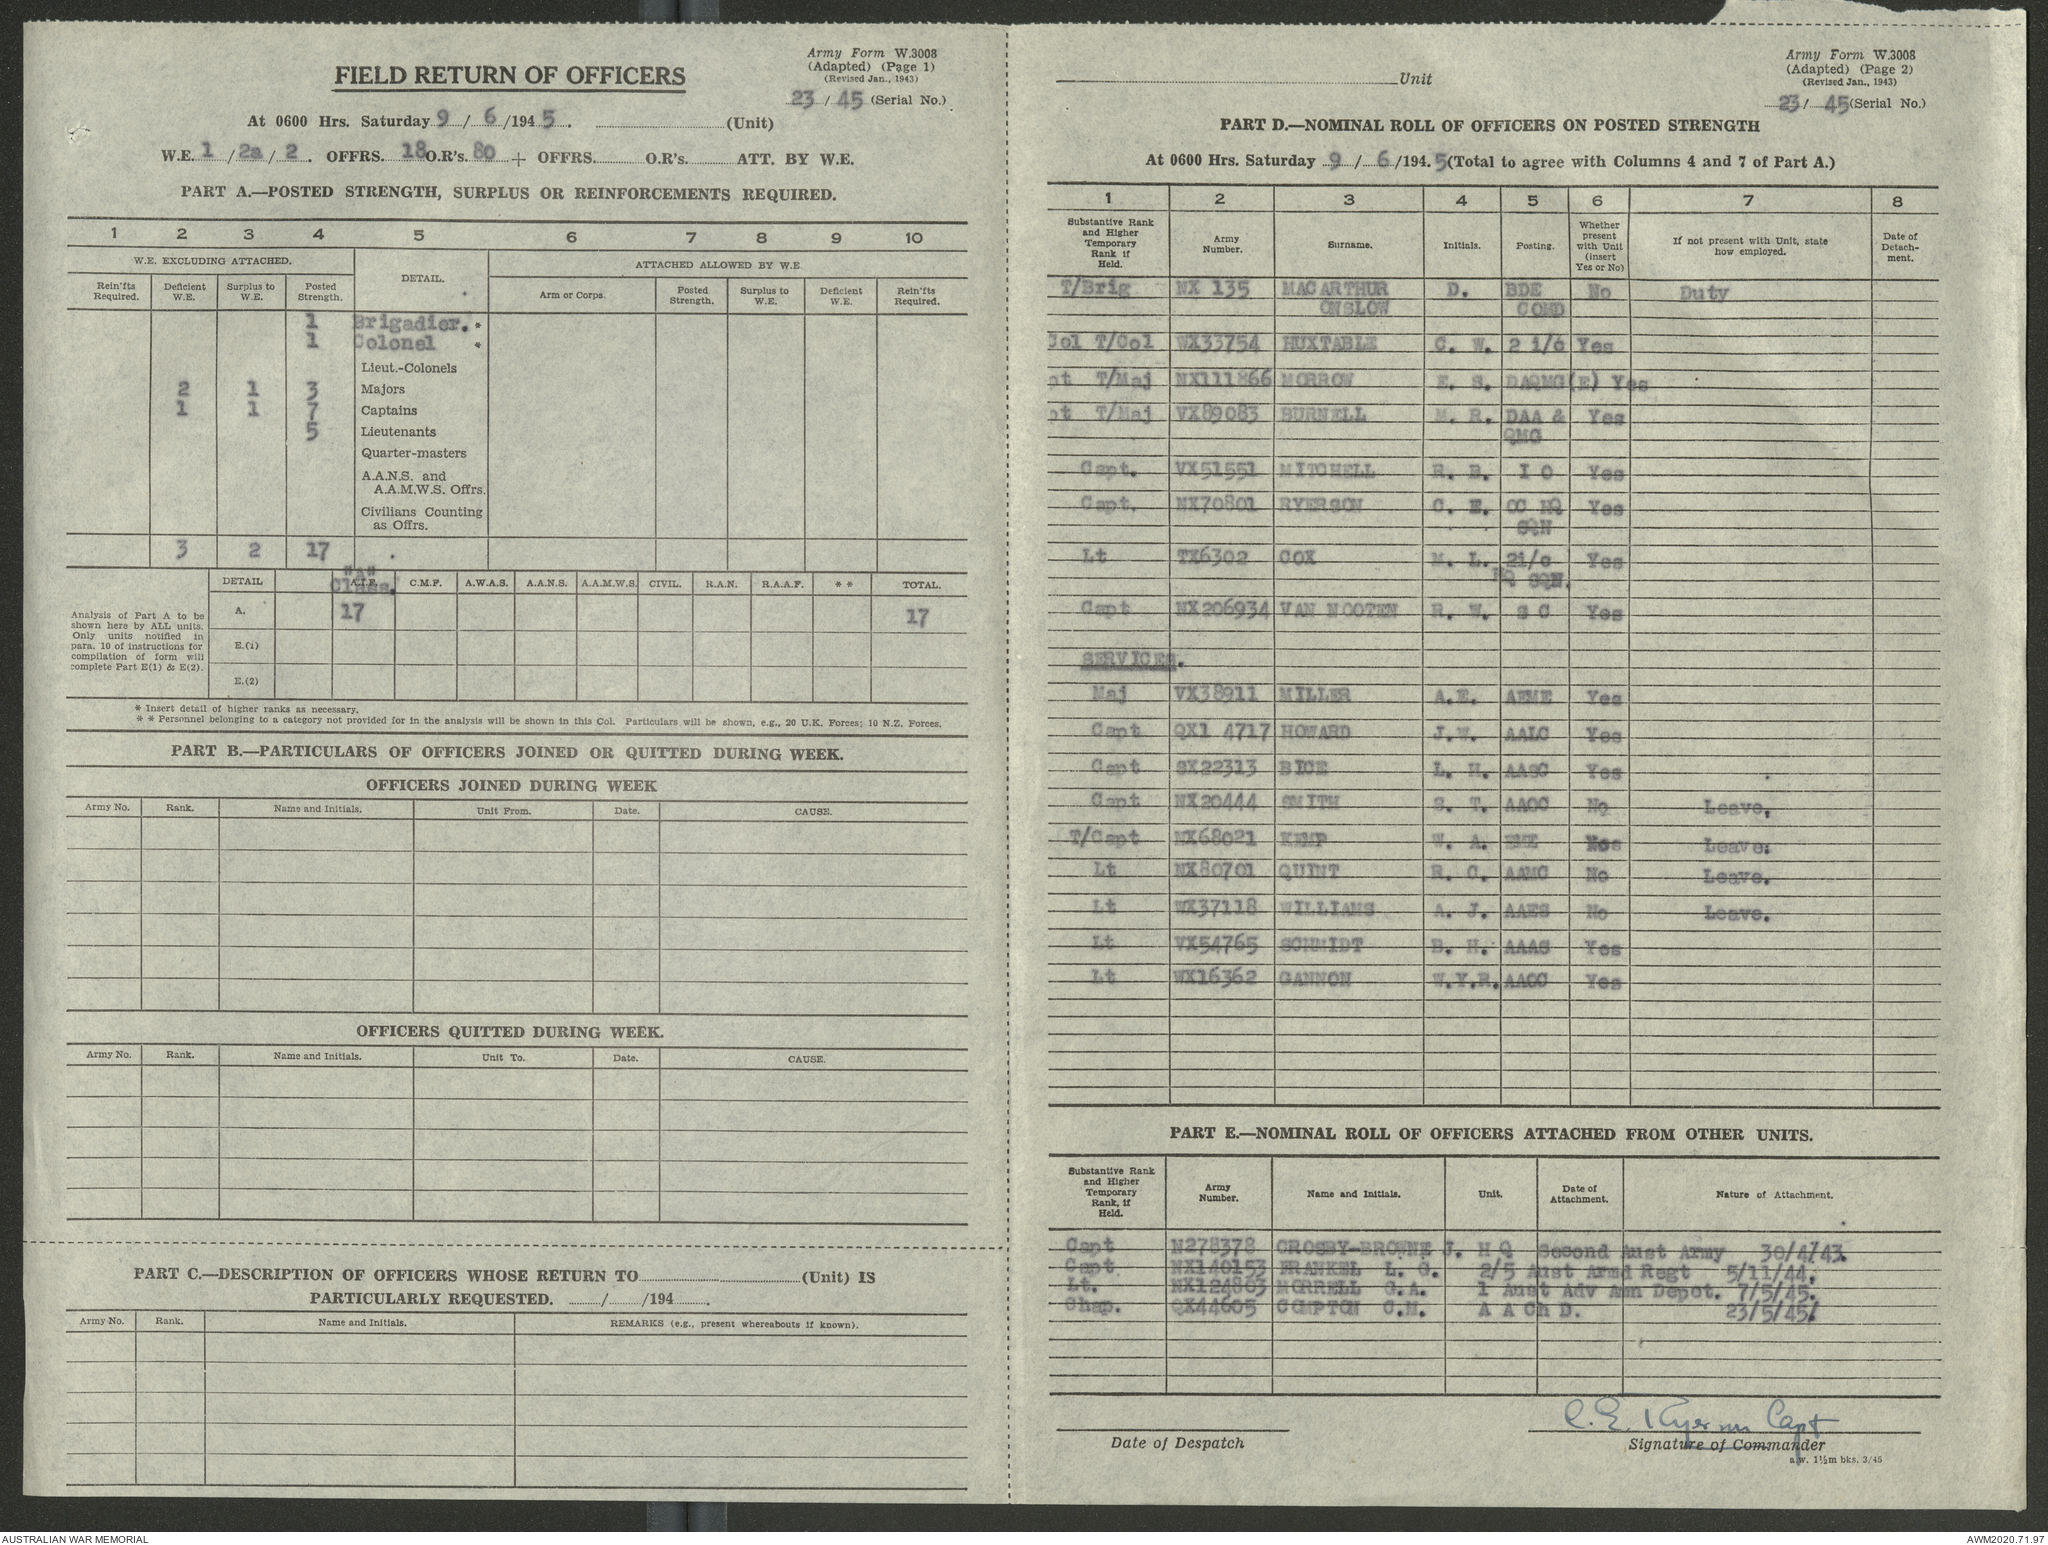 Army Form W.3008
(Adapted) (Page 1)
(Revised Jan., 1943)
23 / 45 (Serial No.)
FIELD RETURN OF OFFICERS
At 0600 Hrs. Saturday 9 / 6 /194 5. (Unit)
W.E. 1 / 2a / 2. OFFRS. 18 O.R's. 80 + OFFRS. O.R's. ATT. BY W.E.
PART A.—POSTED STRENGTH, SURPLUS OR REINFORCEMENTS REQUIRED.
1 2 3 4 5 6 7 8 9 10
W.E. EXCLUDING ATTACHED. DETAIL. ATTACHED ALLOWED BY W.E.
Rein'fts Required. Deficient W.E. Surplus to W.E. Posted Strength. Arm or Corps. Posted Strength. Surplus to W.E. Deficient W.E. Rein'fts Required.
1 Brigadier. *
1 Colonel *
Lieut.-Colonels
2 1 3 Majors
1 1 7 Captains
5 Lieutenants
Quarter-masters
A.A.N.S. and
A.A.M.W.S. Offrs.
Civilians Counting
as Offrs.
3 2 17 .
"A"
Class.
DETAIL A.I.F. C.M.F. A.W.A.S. A.A.N.S. A.A.M.W.S. CIVIL. R.A.N. R.A.A.F. ** TOTAL.
A. 17 17
E.(1)
E.(2)
Analysis of Part A to be
shown here by ALL units.
Only units notified in
para. 10 of instructions for
compilation of form will
complete Part E(1) & E(2).
* Insert detail of higher ranks as necessary.
* * Personnel belonging to a category not provided for in the analysis will be shown in this Col. Particulars will be shown, e.g., 20 U.K. Forces; 10 N.Z. Forces.
PART B.—PARTICULARS OF OFFICERS JOINED OR QUITTED DURING WEEK.
OFFICERS JOINED DURING WEEK
Army No. Rank. Name and Initials. Unit From. Date. CAUSE.
OFFICERS QUITTED DURING WEEK.
Army No. Rank. Name and Initials. Unit To. Date. CAUSE.
PART C.—DESCRIPTION OF OFFICERS WHOSE RETURN TO (Unit) IS
PARTICULARLY REQUESTED. / /194 .
Army No. Rank. Name and Initials. REMARKS (e.g., present whereabouts if known).
Army Form W.3008
(Adapted) (Page 2)
(Revised Jan., 1943)
23 / 45 (Serial No.)
Unit
PART D.—NOMINAL ROLL OF OFFICERS ON POSTED STRENGTH
At 0600 Hrs. Saturday 9 / 6 /194. 5 (Total to agree with Columns 4 and 7 of Part A.)
1 2 3 4 5 6 7 8
Substantive Rank and Higher Temporary Rank if Held. Army Number. Surname. Initials. Posting. Whether present with Unit (insert Yes or No) If not present with Unit, state how employed. Date of Detach-ment.
T/Brig NX 135 MACARTHUR D. BDE No Duty
ONSLOW COMD
Col T/Col WX33754 HUXTABLE C. W. 2 i/c Yes
pt T/Maj NX111866 MORROW E. S. DAQMG(E) Yes
pt T/Maj VX89083 BURNELL M. R. DAA & Yes
QMG
Capt. VX51551 MITCHELL R. B. I O Yes
Capt. NX70801 RYERSON C. E. OC HQ Yes
SQN
Lt TX6302 COX M. L. 2i/c Yes
HQ SQN.
Capt NX206934 VAN NOOTEN R. W. S C Yes
SERVICES.
Maj VX38911 MILLER A.E. AEME Yes
Capt QX1 4717 HOWARD J.W. AALC Yes
Capt SX22313 BICE L. H. AASC Yes
Capt NX20444 SMITH S. T. AAOC No Leave.
T/Capt NX68021 KEMP W. A. EME Leave.
Lt NX80701 QUINT R. C. AAMC No Leave.
Lt WX37118 WILLIAMS A. J. AAES No Leave.
Lt VX54765 SCHMIDT B. H. AAAS Yes
Lt WX16362 GANNON W.Y.R. AACC Yes
PART E.—NOMINAL ROLL OF OFFICERS ATTACHED FROM OTHER UNITS.
Substantive Rank and Higher Temporary Rank, if Held. Army Number. Name and Initials. Unit. Date of Attachment. Nature of Attachment.
Capt N278378 CROSBY-BROWNE J. H Q Second Aust Army 30/4/43.
Capt NX140153 FRANKEL L. G. 2/5 Aust Armd Regt 5/11/44.
Lt. NX124803 MORRELL G.A. 1 Aust Adv Amn Depot. 7/5/45.
Chap. QX44605 COMPTON C.M. A A Ch D. 23/5/45.
C. E. Ryerson Capt
Date of Despatch Signature of Commander
a.w. 1½m bks. 3/45
AUSTRALIAN WAR MEMORIAL AWM2020.71.97